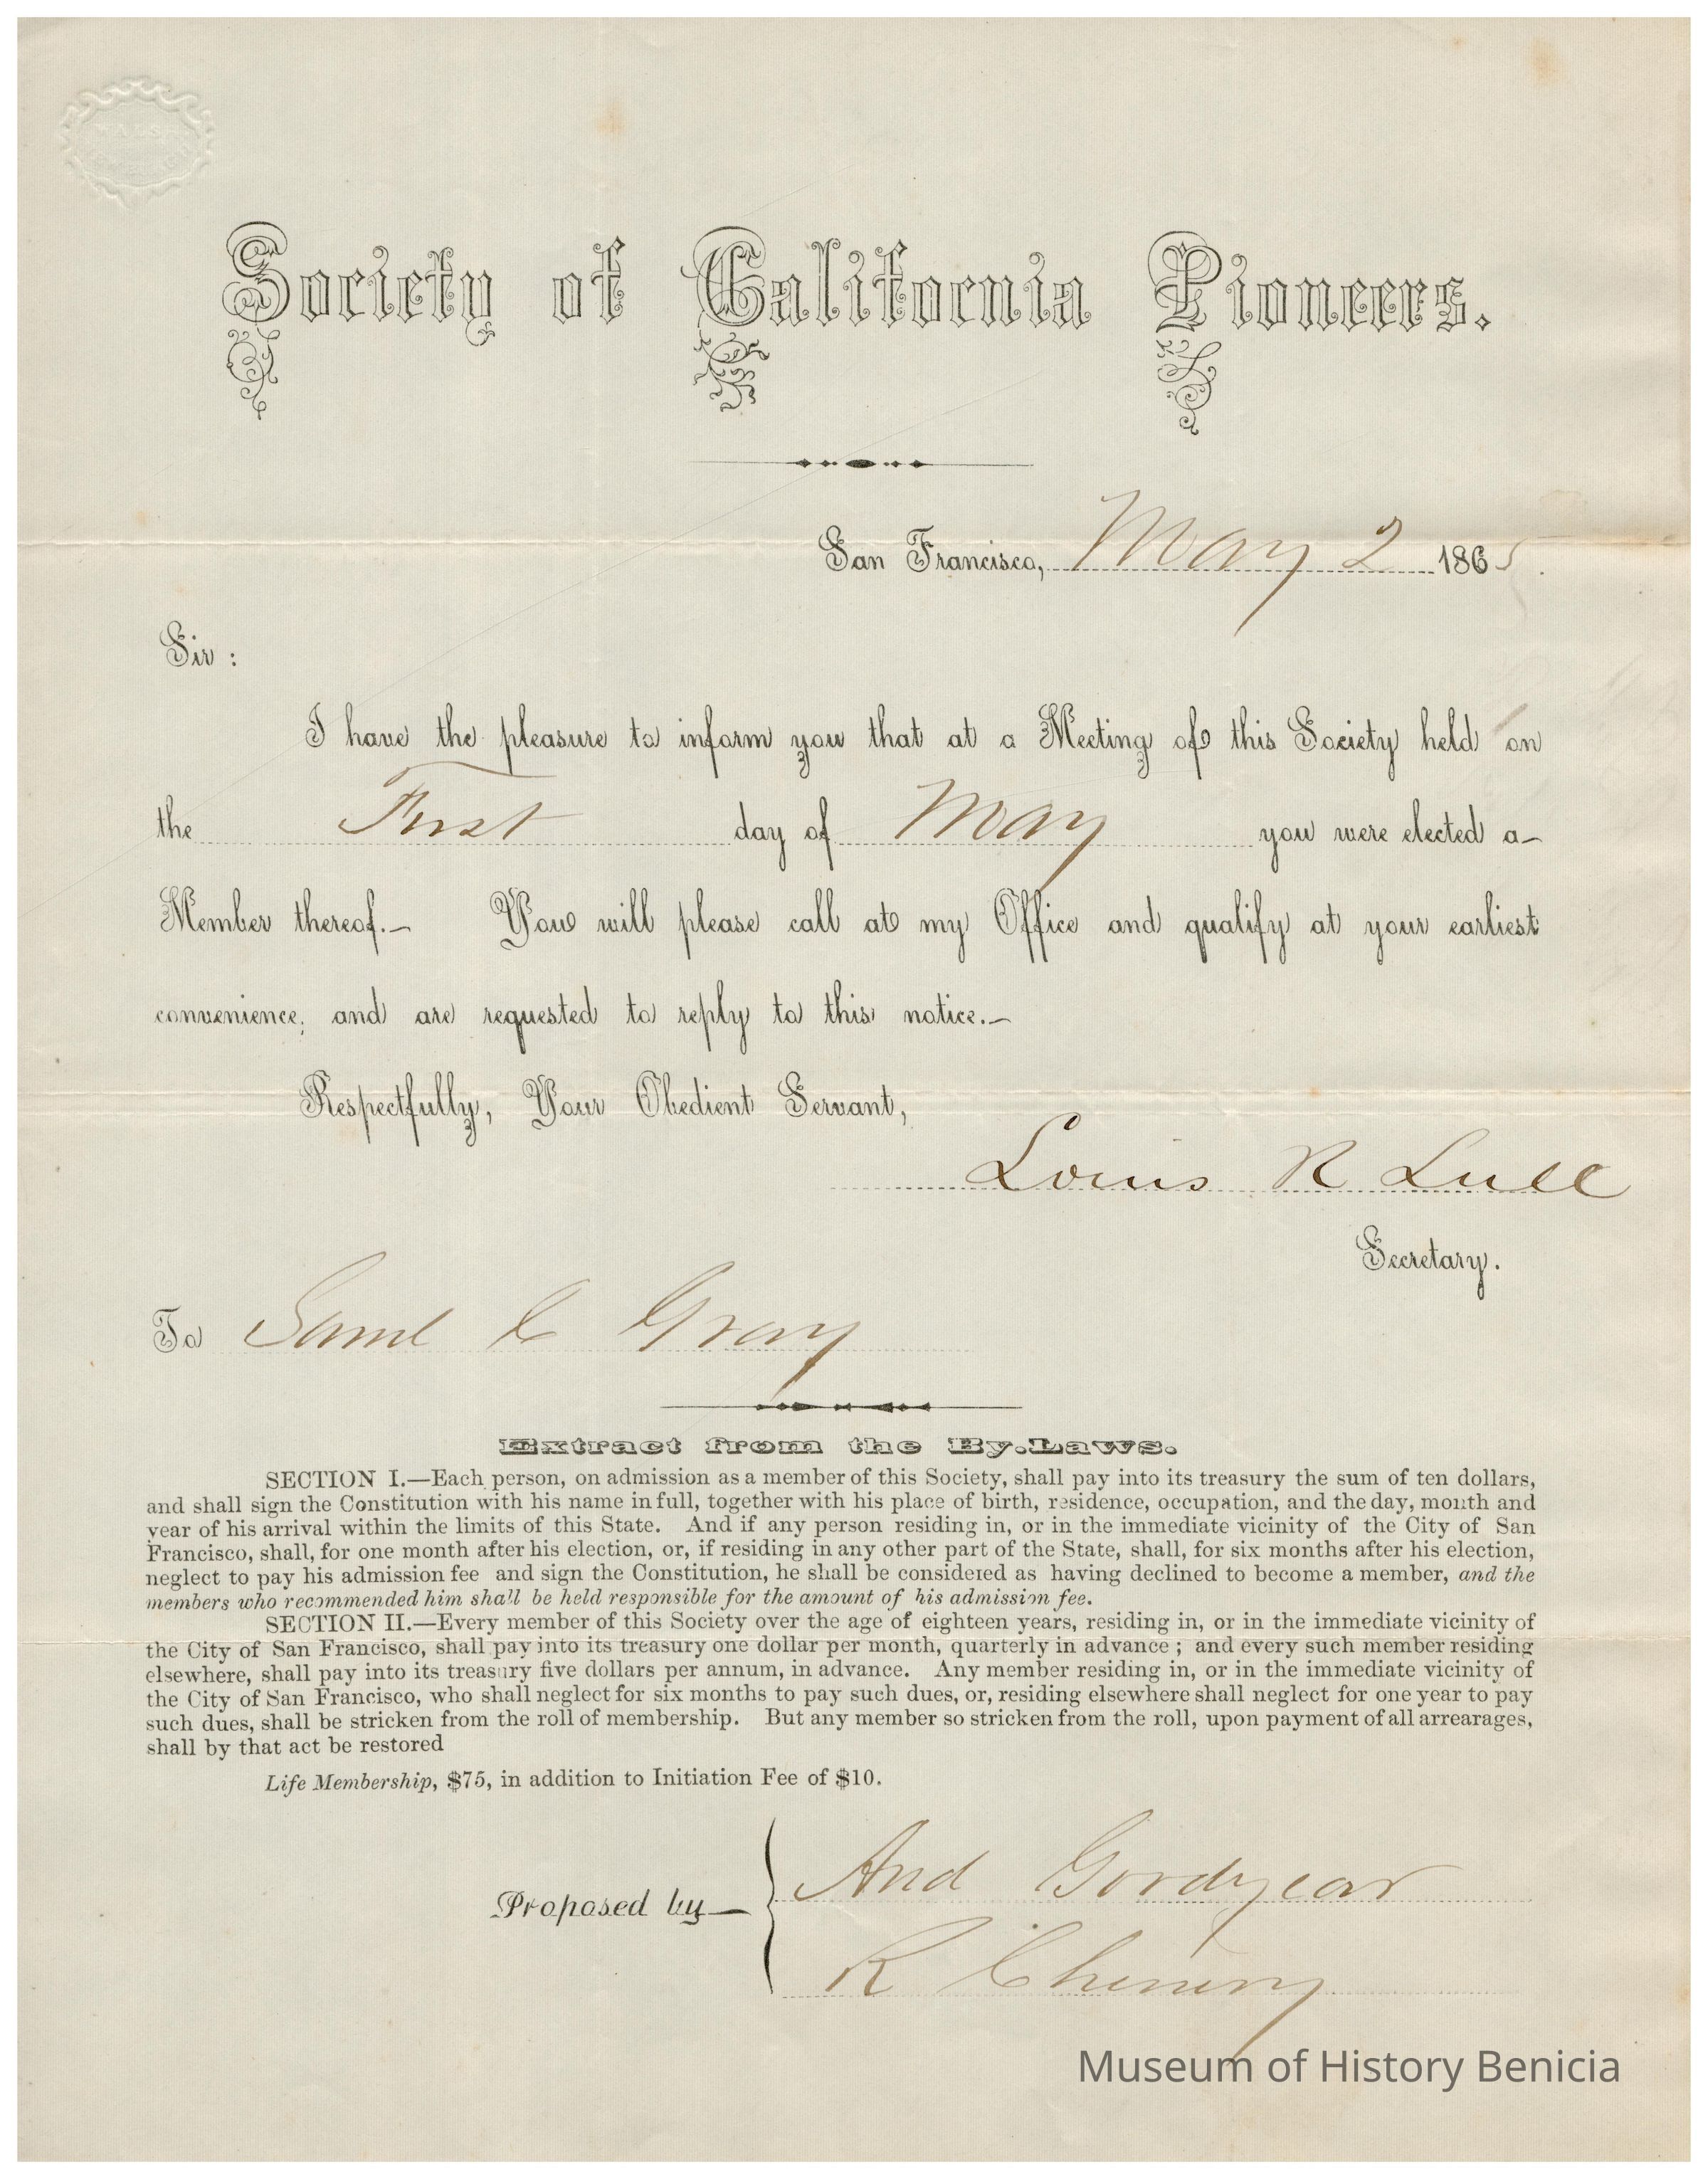 WALSH
Society of California Pioneers.
San Francisco, May 2 1865.
Sir :
I have the pleasure to inform you that at a Meeting of this Society held on
the First day of May you were elected a-
Member thereof.- You will please call at my Office and qualify at your earliest
convenience; and are requested to reply to this notice.-
Respectfully, Your Obedient Servant,
Louis R Lull
Secretary.
To Saml C Gray
Extract from the By.Laws.
SECTION I.—Each person, on admission as a member of this Society, shall pay into its treasury the sum of ten dollars,
and shall sign the Constitution with his name in full, together with his place of birth, residence, occupation, and the day, month and
year of his arrival within the limits of this State. And if any person residing in, or in the immediate vicinity of the City of San
Francisco, shall, for one month after his election, or, if residing in any other part of the State, shall, for six months after his election,
neglect to pay his admission fee and sign the Constitution, he shall be considered as having declined to become a member, and the
members who recommended him shall be held responsible for the amount of his admission fee.
SECTION II.—Every member of this Society over the age of eighteen years, residing in, or in the immediate vicinity of
the City of San Francisco, shall pay into its treasury one dollar per month, quarterly in advance ; and every such member residing
elsewhere, shall pay into its treasury five dollars per annum, in advance. Any member residing in, or in the immediate vicinity of
the City of San Francisco, who shall neglect for six months to pay such dues, or, residing elsewhere shall neglect for one year to pay
such dues, shall be stricken from the roll of membership. But any member so stricken from the roll, upon payment of all arrearages,
shall by that act be restored
Life Membership, $75, in addition to Initiation Fee of $10.
Proposed by— And Goodyear
R Chenery
Museum of History Benicia